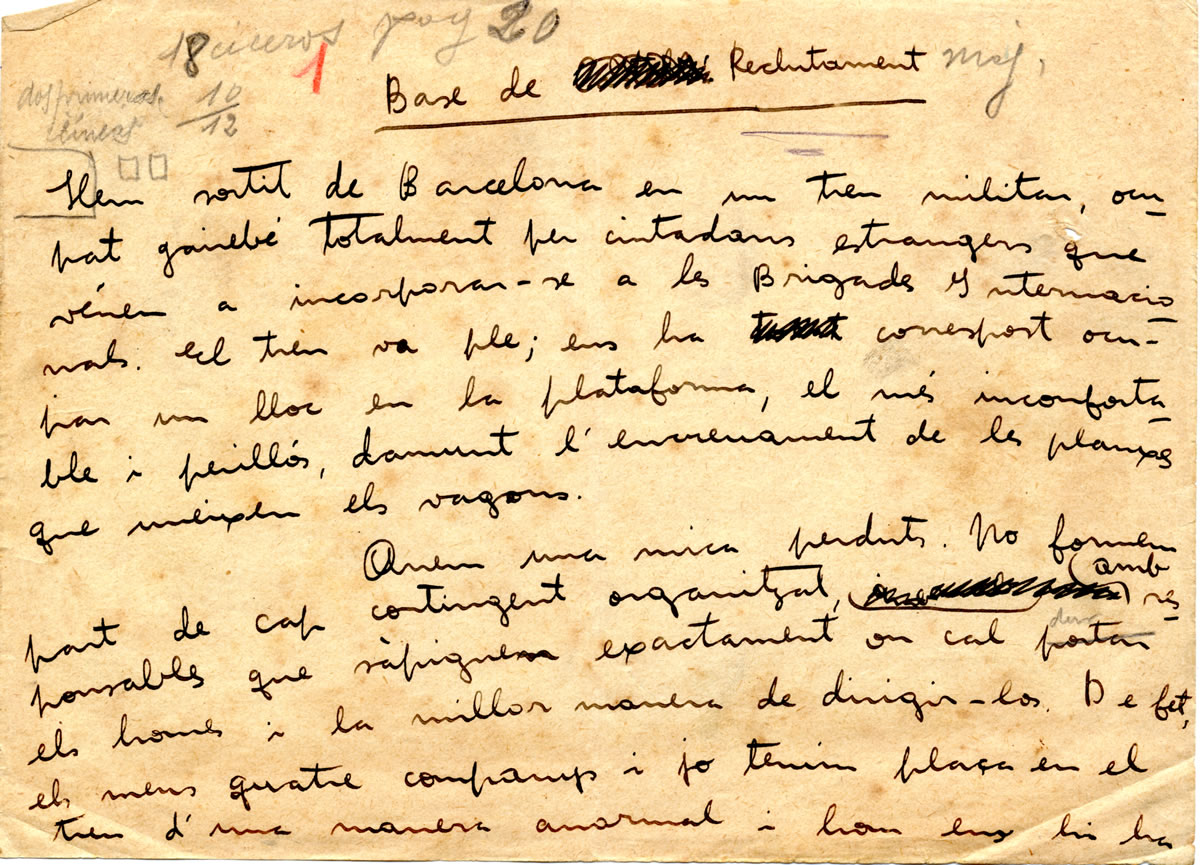 18 ciceros pag 20
1
dos primeras
líneas
10
12
Base de Reclutament maj.
Hem sortit de Barcelona en un tren militar, ocu-
pat gairebé totalment per ciutadans estrangers que
vénen a incorporar-se a les Brigades Internacio-
nals. El tren va ple; ens ha correspost ocu-
par un lloc en la plataforma, el més inconforta-
ble i perillós, damunt l'encreuament de les planxes
que uneixen els vagons.
Anem una mica perduts. No formem
part de cap contingent organitzat, amb res-
ponsables que sàpiguen exactament on cal portar
els homes i la millor manera de dirigir-los. De fet,
els meus quatre companys i jo tenim plaça en el
tren d'una manera anormal i hom ens hi ha